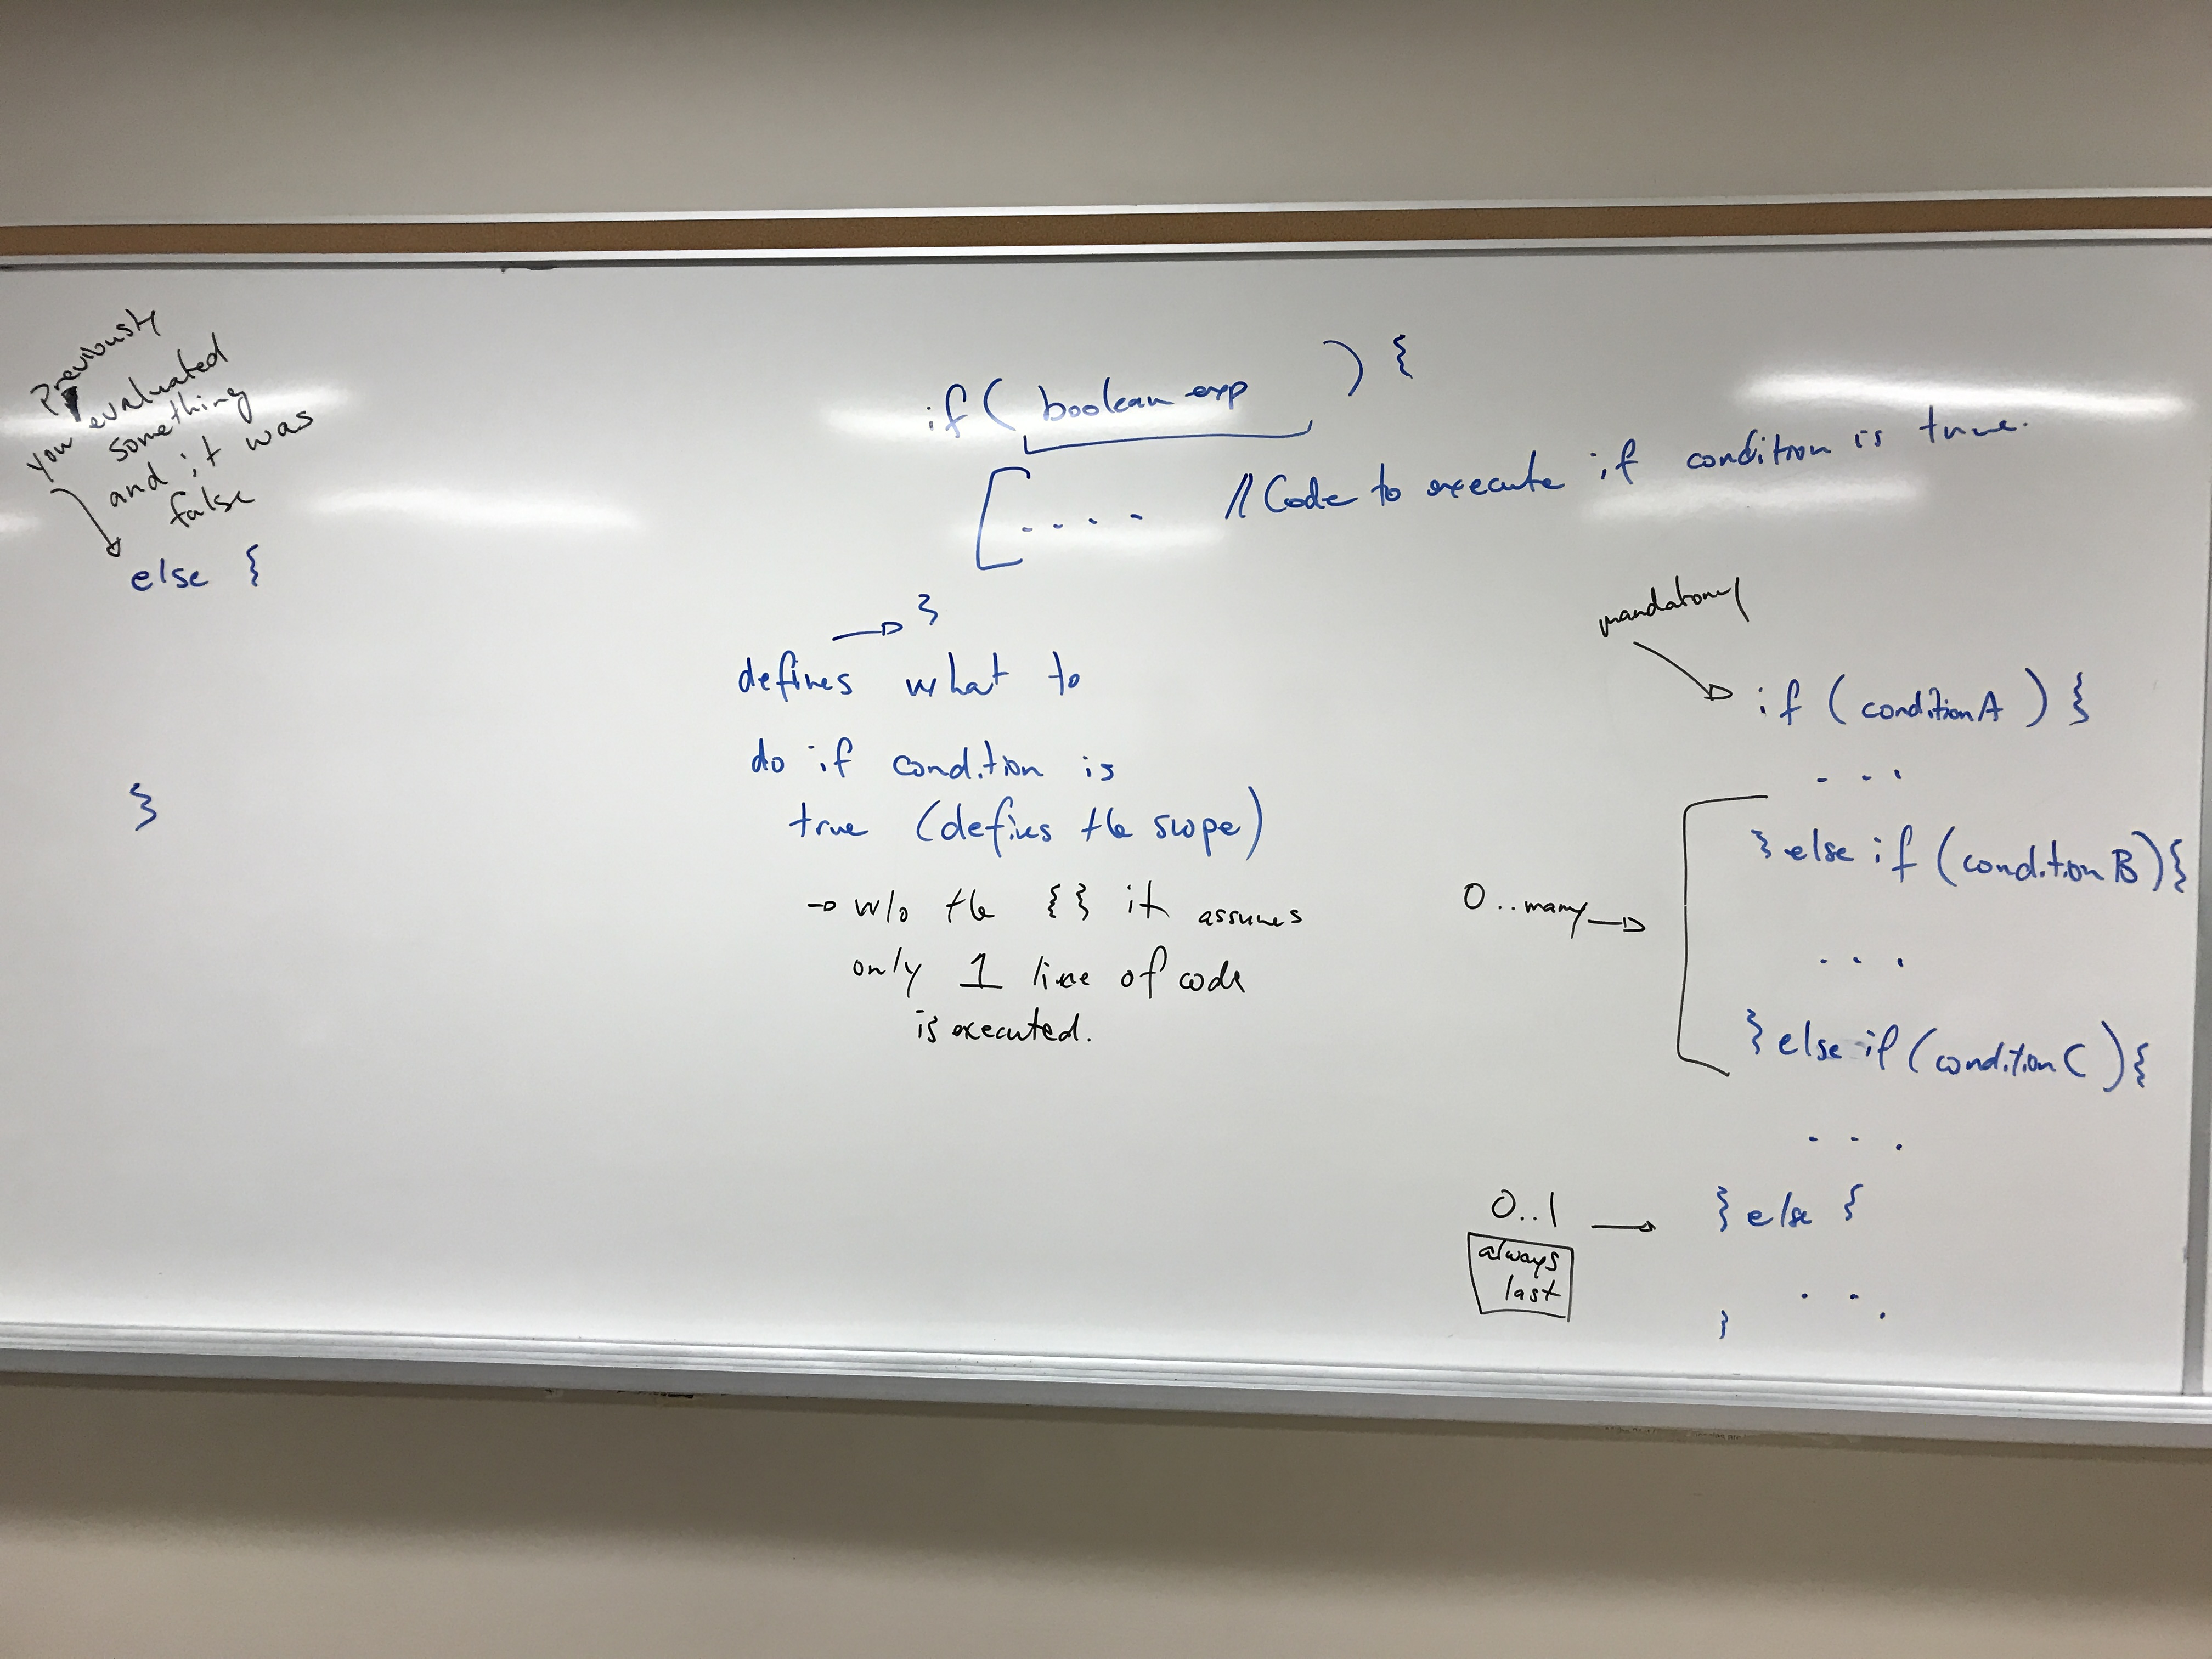 Previously
you evaluated
something
and it was
false
else {
}
if ( boolean exp ) {
. . . . // Code to execute if condition is true.
}
defines what to
do if condition is
true (defines the scope)
→ w/o the { } it assumes
only 1 line of code
is executed.
mandatory
if ( condition A ) {
. . .
0..many →
} else if ( condition B ) {
. . .
} else if ( condition C ) {
. . .
0..1 → } else {
always
last
. . .
}